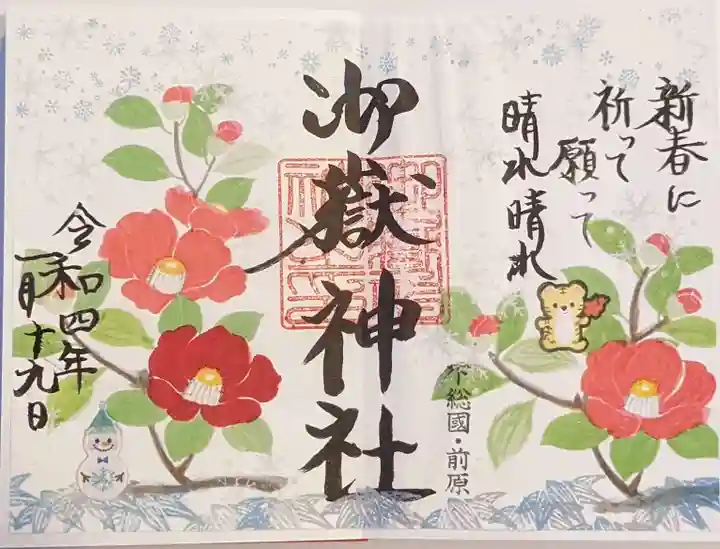 新春に
祈って
願って
晴れ晴れ
御嶽神社
下総國・前原
令和四年
一月十九日